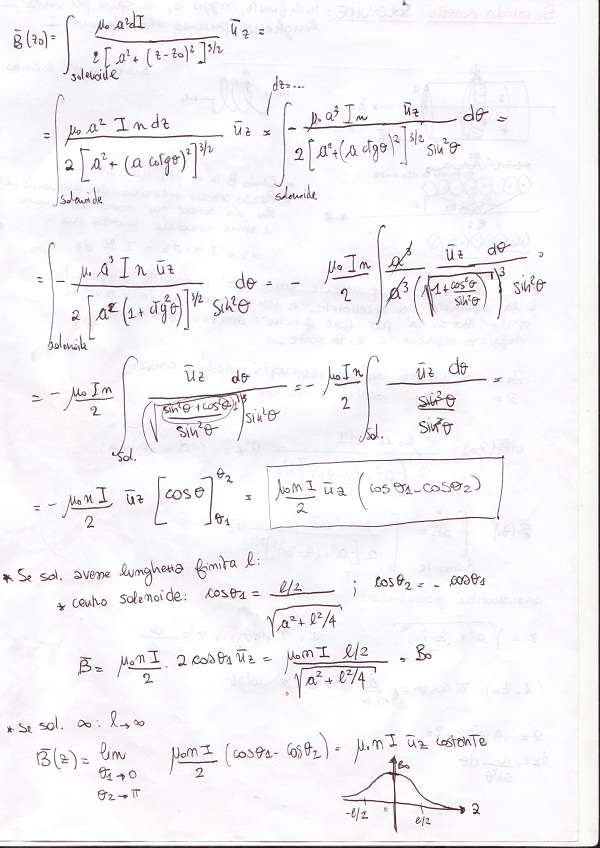 B̄(z₀) = ∫_solenoide μ₀a²dI / 2[a²+(z-z₀)²]^3/2 ū_z =
dz=...
= ∫_solenoide μ₀a² I n dz / 2[a²+(a cotgθ)²]^3/2 ū_z = ∫_solenoide - μ₀a³ I n ū_z / 2[a²+(a ctgθ)²]^3/2 sin²θ dθ =
= ∫_solenoide - μ₀a³ I n ū_z / 2[a²(1+ctg²θ)]^3/2 sin²θ dθ = - μ₀In/2 ∫ a³/a³ ū_z dθ / (√(1+cos²θ/sin²θ))³ sin²θ =
= - μ₀In/2 ∫_sol. ū_z dθ / (√((sin²θ+cos²θ)/sin²θ))³ sin²θ = - μ₀In/2 ∫_sol. ū_z dθ / (sin²θ/sin³θ) =
= - μ₀nI/2 ū_z [cosθ]_θ₁^θ₂ = μ₀nI/2 ū_z (cosθ₁-cosθ₂)
* Se sol. avesse lunghezza finita l:
* centro solenoide: cosθ₁ = l/2 / √(a²+l²/4) ; cosθ₂ = - cosθ₁
B̄ = μ₀nI/2 · 2cosθ₁ ū_z = μ₀nI l/2 / √(a²+l²/4) = B₀
* Se sol. ∞: l→∞
B̄(z) = lim_θ₁→0 θ₂→π μ₀nI/2 (cosθ₁-cosθ₂) = μ₀nI ū_z costante
B₀
-l/2 0 l/2 z